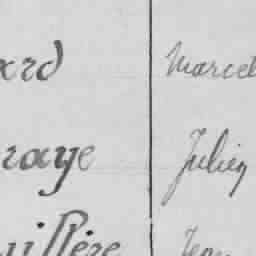 ard Marcel
raye Julien
uillère Jean